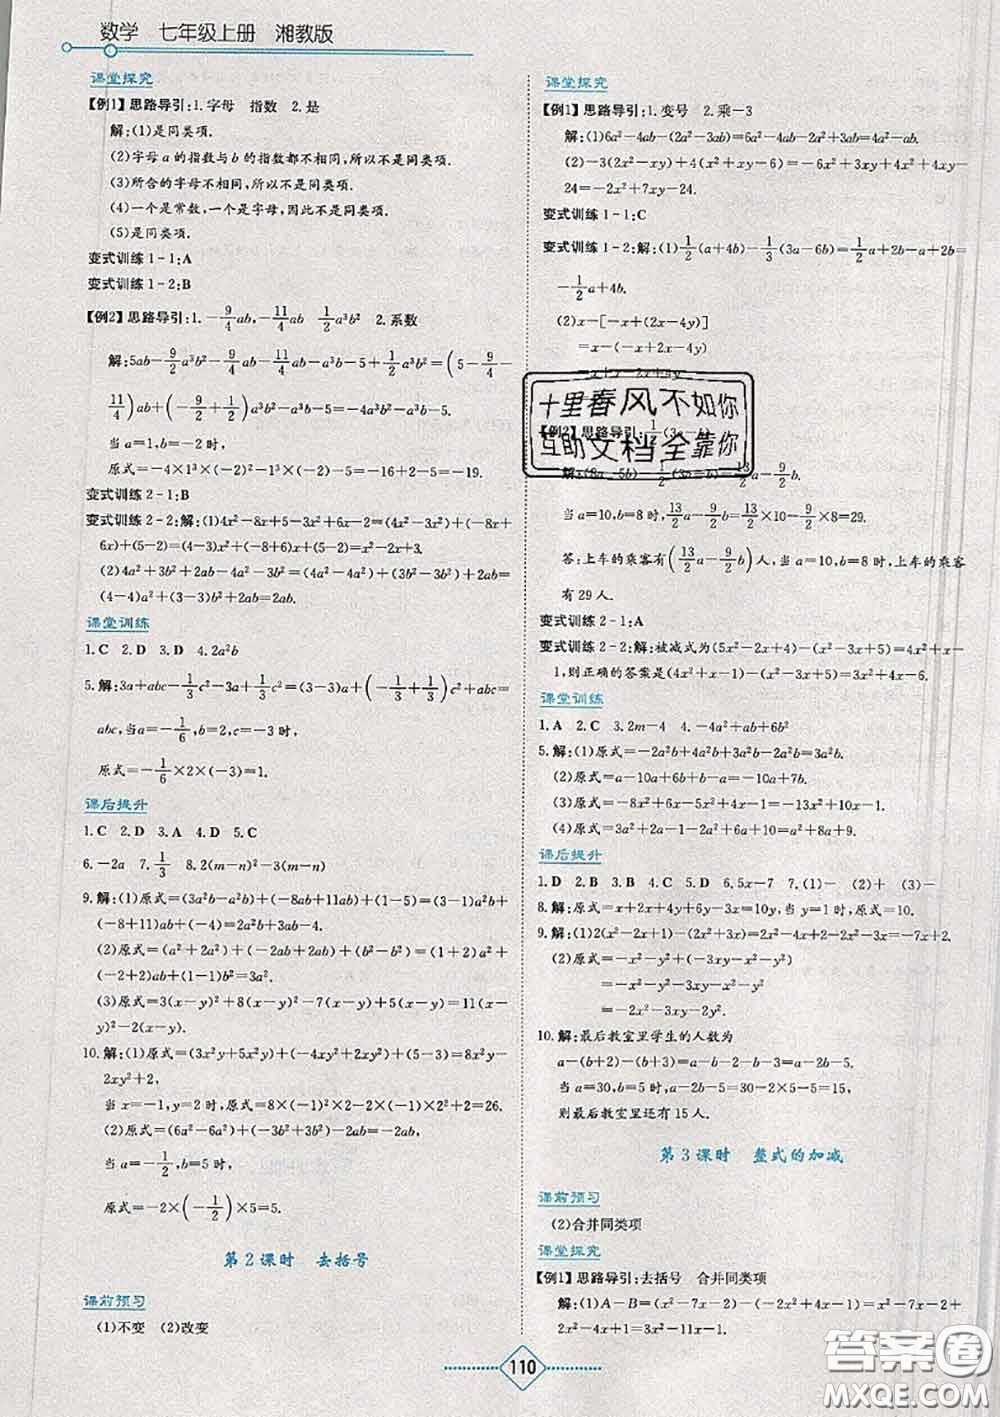 数学 七年级上册 湘教版
课堂探究
【例1】思路导引:1.字母 指数 2.是
解:(1)是同类项.
(2)字母a的指数与b的指数都不相同,所以不是同类项.
(3)所含的字母不相同,所以不是同类项.
(4)一个是常数,一个是字母,因此不是同类项.
(5)是同类项.
变式训练1-1:A
变式训练1-2:B
【例2】思路导引:1.-9/4ab,-11/4ab 1/2a³b² 2.系数
解:5ab-9/2a³b²-9/4ab-11/4ab-a³b-5+1/2a³b²=(5-9/4-
11/4)ab+(-9/2+1/2)a³b²-a³b-5=-4a³b²-a³b-5.
当a=1,b=3时,
原式=-4×1³×3²-1³×3-5=-36-3-5=-44.
变式训练2-1:B
变式训练2-2:解:(1)4x²-8x+5-3x²+6x-2=(4x²-3x²)+(-8x+
6x)+(5-2)=(4-3)x²+(-8+6)x+(5-2)=x²-2x+3.
(2)4a²+3b²+2ab-4a²-3b²=(4a²-4a²)+(3b²-3b²)+2ab=
(4-4)a²+(3-3)b²+2ab=2ab.
课堂训练
1.C 2.D 3.D 4.2a²b
5.解:3a+abc-1/3c²-3a+1/3c²=(3-3)a+(-1/3+1/3)c²+abc=
abc,当a=-1/6,b=2,c=-3时,
原式=-1/6×2×(-3)=1.
课后提升
1.C 2.D 3.A 4.D 5.C
6.-2a 7.1/3 8.2(m-n)²-3(m-n)
9.解:(1)原式=(3a²b-a²b)+(-8ab+11ab)+(-4)=(3-1)a²b+
(-8+11)ab+(-4)=2a²b+3ab-4.
(2)原式=(a²+2a²)+(-2ab+2ab)+(b²-b²)=(1+2)a²+
(-2+2)ab+(1-1)b²=3a².
(3)原式=3(x-y)²+8(x-y)²-7(x-y)+5(x-y)=11(x-
y)²-2(x-y).
10.解:(1)原式=(3x²y+5x²y)+(-4xy²+2xy²)+(5-3)=8x²y-
2xy²+2,
当x=-1,y=2时,原式=8×(-1)²×2-2×(-1)×2²+2=26.
(2)原式=(6a²-6a²)+(-3b²+3b²)-2ab=-2ab,
当a=-1/2,b=5时,
原式=-2×(-1/2)×5=5.
第2课时 去括号
课前预习
(1)不变 (2)改变
课堂探究
【例1】思路导引:1.变号 2.乘-3
解:(1)6a²-4ab-(2a²-3ab)=6a²-4ab-2a²+3ab=4a²-ab.
(2)-3(2x²-xy)+4(x²+xy-6)=-6x²+3xy+4x²+4xy-
24=-2x²+7xy-24.
变式训练1-1:C
变式训练1-2:(1)1/2(a+4b)-1/3(3a-6b)=1/2a+2b-a+2b=
-1/2a+4b.
(2)x-[-x+(2x-4y)]
=x-(-x+2x-4y)
=x+x-2x+4y
十里春风不如你
【例2】思路导引:1/2(3a-b)
互助文档全靠你
解:(8a-5b)-1/2(3a-b)=13/2a-9/2b.
当a=10,b=8时,13/2a-9/2b=13/2×10-9/2×8=29.
答:上车的乘客有(13/2a-9/2b)人,当a=10,b=8时,上车的乘客
有29人.
变式训练2-1:A
变式训练2-2:解:被减式为(5x²-2x+4)-(x²-3x+5)=4x²+x-
1,则正确的答案是(4x²+x-1)-(x²-3x+5)=3x²+4x-6.
课堂训练
1.A 2.C 3.2m-4 4.-4a²+ab+6b²
5.解:(1)原式=-2a²b+4a²b+3a²b-2a²b=3a²b.
(2)原式=a-10a+6b+b-a=-10a+7b.
(3)原式=-8x²+6x-5x²+4x-1=-13x²+10x-1.
(4)原式=3a²+2a-1-2a²+6a+10=a²+8a+9.
课后提升
1.D 2.B 3.B 4.C 5.D 6.5x-7 7.(1)- (2)+ (3)-
8.解:原式=x+2x+4y+6y-3x=10y,当y=1时,原式=10.
9.解:(1)2(x²-2x+1)-(2x²+3x)=2x²-4x+2-2x²-3x=-7x+2.
(2)原式=-x²-y²+(-3xy-x²+y²)
=-x²-y²-3xy-x²+y²
=-2x²-3xy-2y².
10.解:最后教室里学生的人数为
a-(b+2)-(b+3)=a-b-2-b-3=a-2b-5.
当a=30,b=5时,a-2b-5=30-2×5-5=15,
则最后教室里还有15人.
第3课时 整式的加减
课前预习
(2)合并同类项
课堂探究
【例1】思路导引:去括号 合并同类项
解:(1)A-B=(x²-7x-2)-(-2x²+4x-1)=x²-7x-2+
2x²-4x+1=3x²-11x-1.
110
答案圈
MXQE.COM